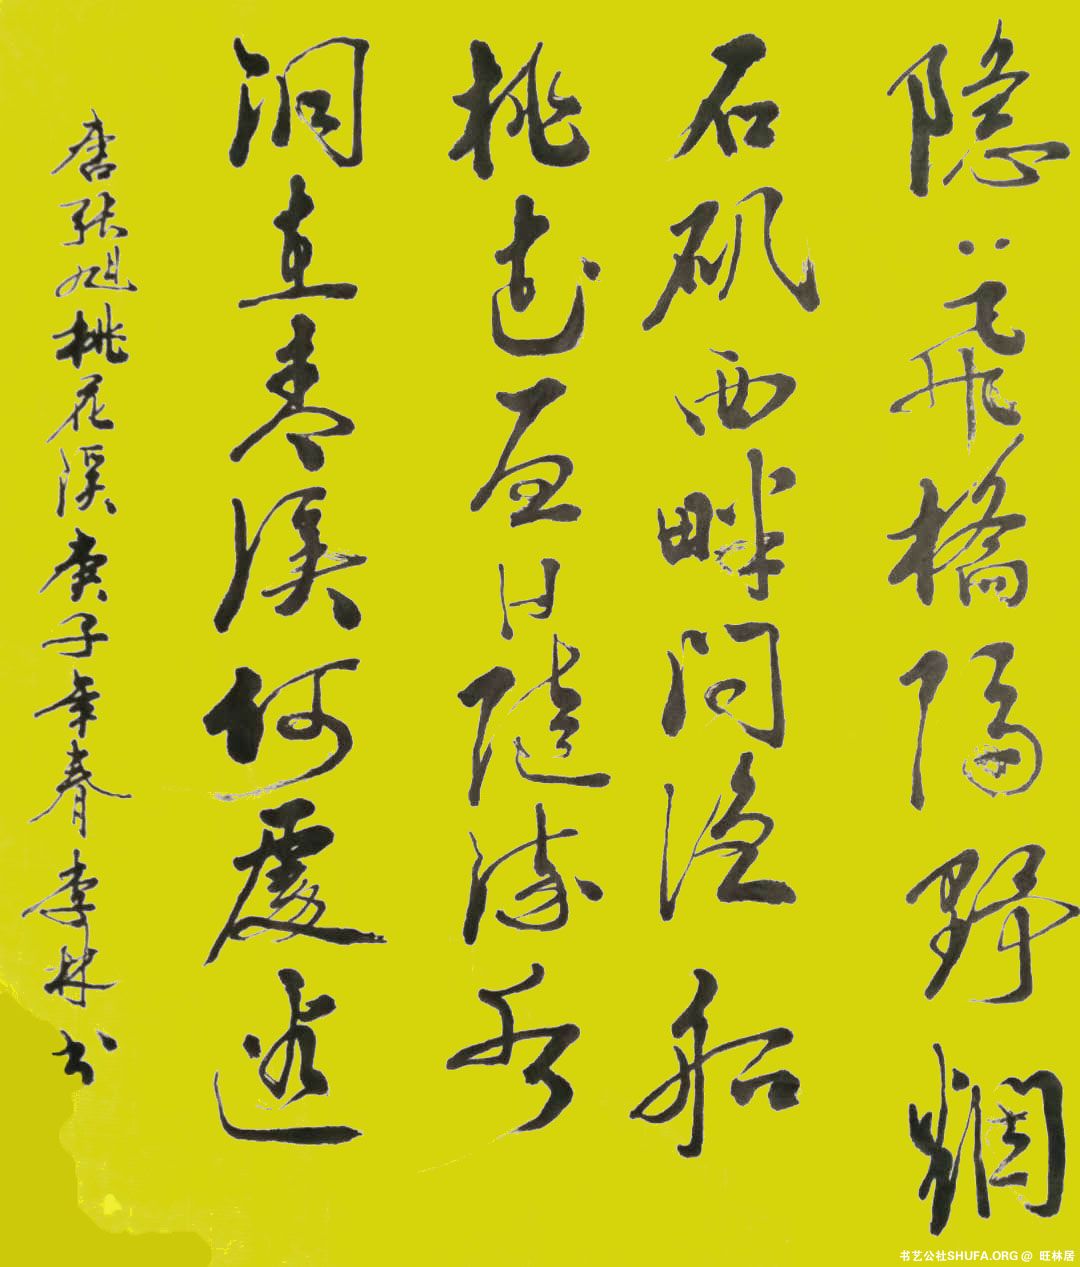 隐〻飛橋隔野烟
石矶西畔问渔船
桃花尽日隨流水
洞在青溪何處边
唐张旭桃花溪庚子年春李林书
书艺公社SHUFA.ORG @ 旺林居